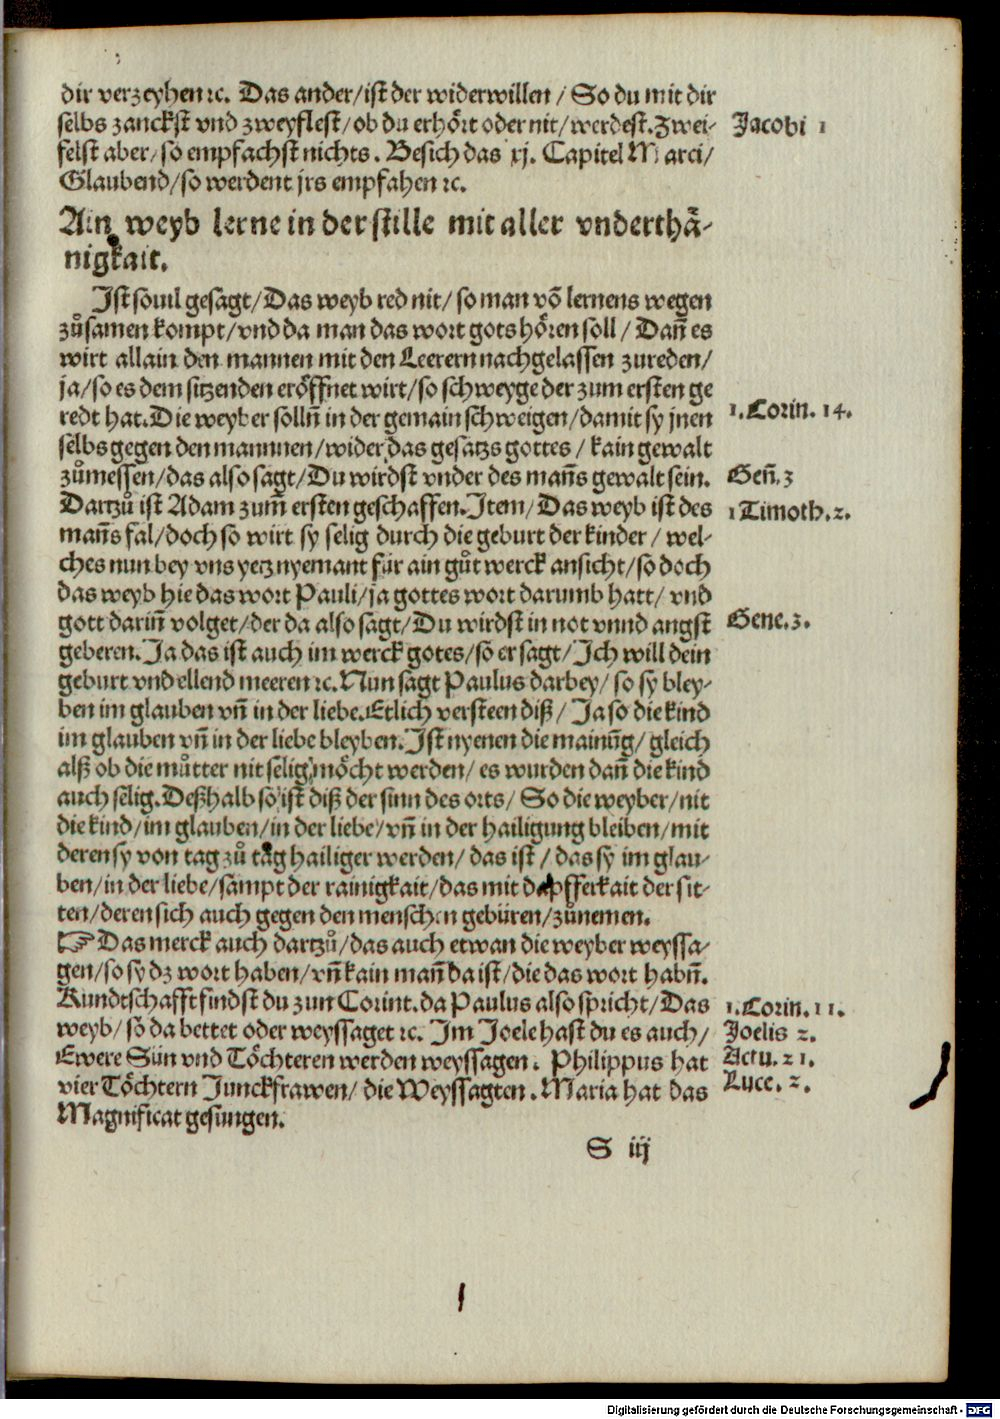 dir verzeyhen ꝛc. Das ander/ist der widerwillen/ So du mit dir
selbs zanckst vnd zweyflest/ob du erhoͤrt oder nit/werdest. Zwei-
Jacobi 1
felst aber/so empfachst nichts. Besich das xj. Capitel Marci/
Glaubend/so werdent jrs empfahen ꝛc.
Ain weyb lerne in der stille mit aller vnderthaͤ-
nigkait.
Ist souil gesagt/Das weyb red nit/so man võ lernens wegen
zuͦsamen kompt/vnd da man das wort gots hoͤren soll/ Dañ es
wirt allain den mannen mit den Leerern nachgelassen zureden/
ja/so es dem sitzenden eroͤffnet wirt/so schweyge der zum ersten ge
redt hat. Die weyber solln̄ in der gemain schweigen/damit sy jnen
1. Corin. 14.
selbs gegen den mannnen/wider das gesatzs gottes/ kain gewalt
zuͦmessen/das also sagt/Du wirdst vnder des man̄s gewalt sein.
Gen̄. 3
Dartzuͦ ist Adam zum̄ ersten geschaffen. Item/Das weyb ist des
1 Timoth. 2.
man̄s fal/doch so wirt sy selig durch die geburt der kinder/ wel-
ches nun bey vns yetz nyemant für ain guͦt werck ansicht/so doch
das weyb hie das wort Pauli/ja gottes wort darumb hatt/ vnd
gott darin̄ volget/der da also sagt/Du wirdst in not vnnd angst
Gene. 3.
geberen. Ja das ist auch im werck gotes/so er sagt/Ich will dein
geburt vnd ellend meeren ꝛc. Nun sagt Paulus darbey/ so sy bley-
ben im glauben vn̄ in der liebe. Etlich versteen diß/ Ja so die kind
im glauben vn̄ in der liebe bleyben. Ist nyenen die mainūg/ gleich
alß ob die muͦtter nit selig moͤcht werden/ es wurden dan̄ die kind
auch selig. Deßhalb so ist diß der sinn des orts/ So die weyber/nit
die kind/im glauben/in der liebe/vn̄ in der hailigung bleiben/mit
deren sy von tag zuͦ tag hailiger werden/ das ist/ das sy im glau-
ben/in der liebe/sampt der rainigkait/das mit dapfferkait der sit-
ten/deren sich auch gegen den menschen gebüren/zuͦnemen.
☞ Das merck auch dartzuͦ/das auch etwan die weyber weyssa-
gen/so sy dz wort haben/vn̄ kain man̄ da ist/die das wort habn̄.
Kundtschafft findst du zun Corint. da Paulus also spricht/Das
1. Corin. 11.
weyb/ so da bettet oder weyssaget ꝛc. Im Joele hast du es auch/
Joelis 2.
Ewere Sün vnd Toͤchteren werden weyssagen. Philippus hat
Actu. 21.
vier Toͤchtern Junckfrawen/ die Weyssagten. Maria hat das
Luce. 2.
Magnificat gesungen.
S iij
Digitalisierung gefördert durch die Deutsche Forschungsgemeinschaft - DFG